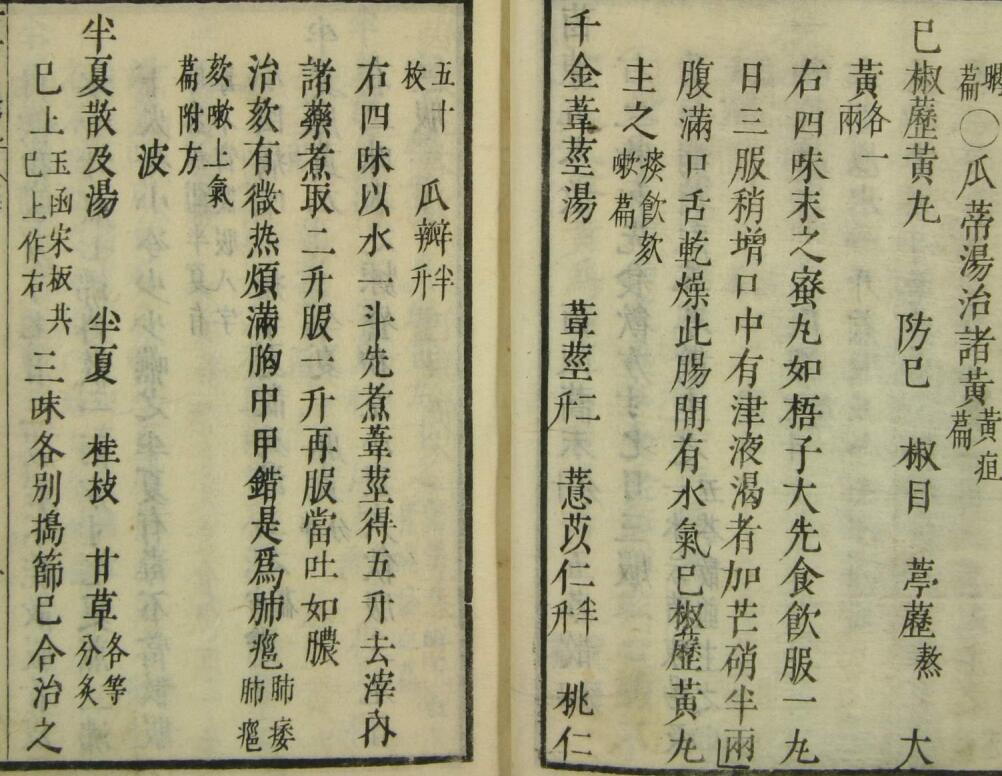 暍篇〇瓜蒂湯治諸黃黃疸篇
巳椒藶黃丸　防巳　椒目　葶藶熬　大
黃各一兩
右四味末之蜜丸如梧子大先食飲服一丸
日三服稍增口中有津液渴者加芒硝半兩
腹滿口舌乾燥此腸間有水氣巳椒藶黃丸
主之痰飲欬嗽篇
千金葦莖湯　葦莖二升　薏苡仁半升　桃仁
五十枚　瓜瓣半升
右四味以水一斗先煮葦莖得五升去滓內
諸藥煮取二升服一升再服當吐如膿
治欬有微热煩滿胸中甲錯是為肺癰肺痿肺癰
欬嗽上氣篇附方
波
半夏散及湯　半夏　桂枝　甘草各等分炙
巳上玉函宋板共巳上作右三味各別搗篩巳合治之